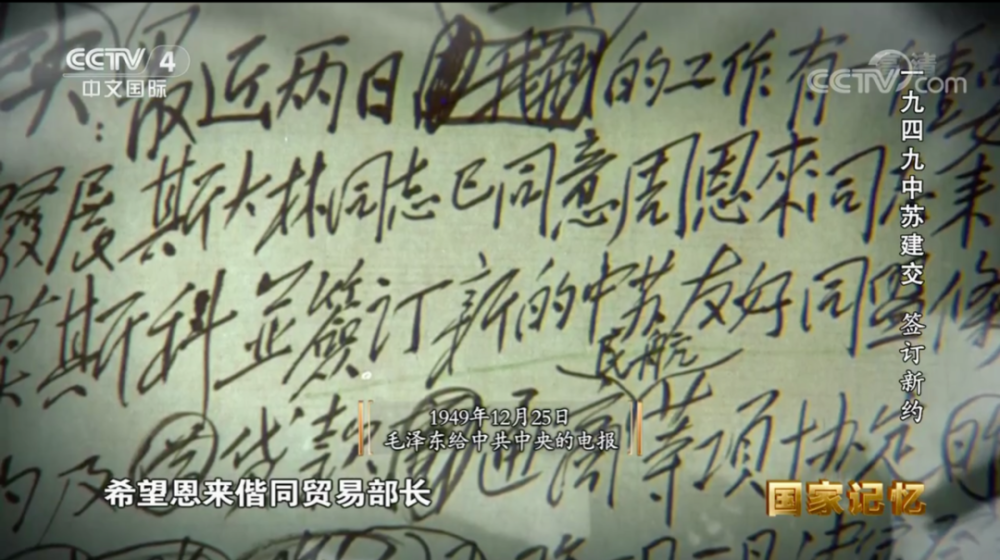 CCTV 4
中文国际
CCTV.com
一九四九中苏建交 签订新约
最近两日 的工作有一
發展 斯大林同志已同意周恩來同志来
莫斯科 並簽订新的中苏友好同盟條
民航
约及 贷款 通商等项协定
1949年12月25日
毛泽东给中共中央的电报
希望恩来偕同贸易部长
国家记忆